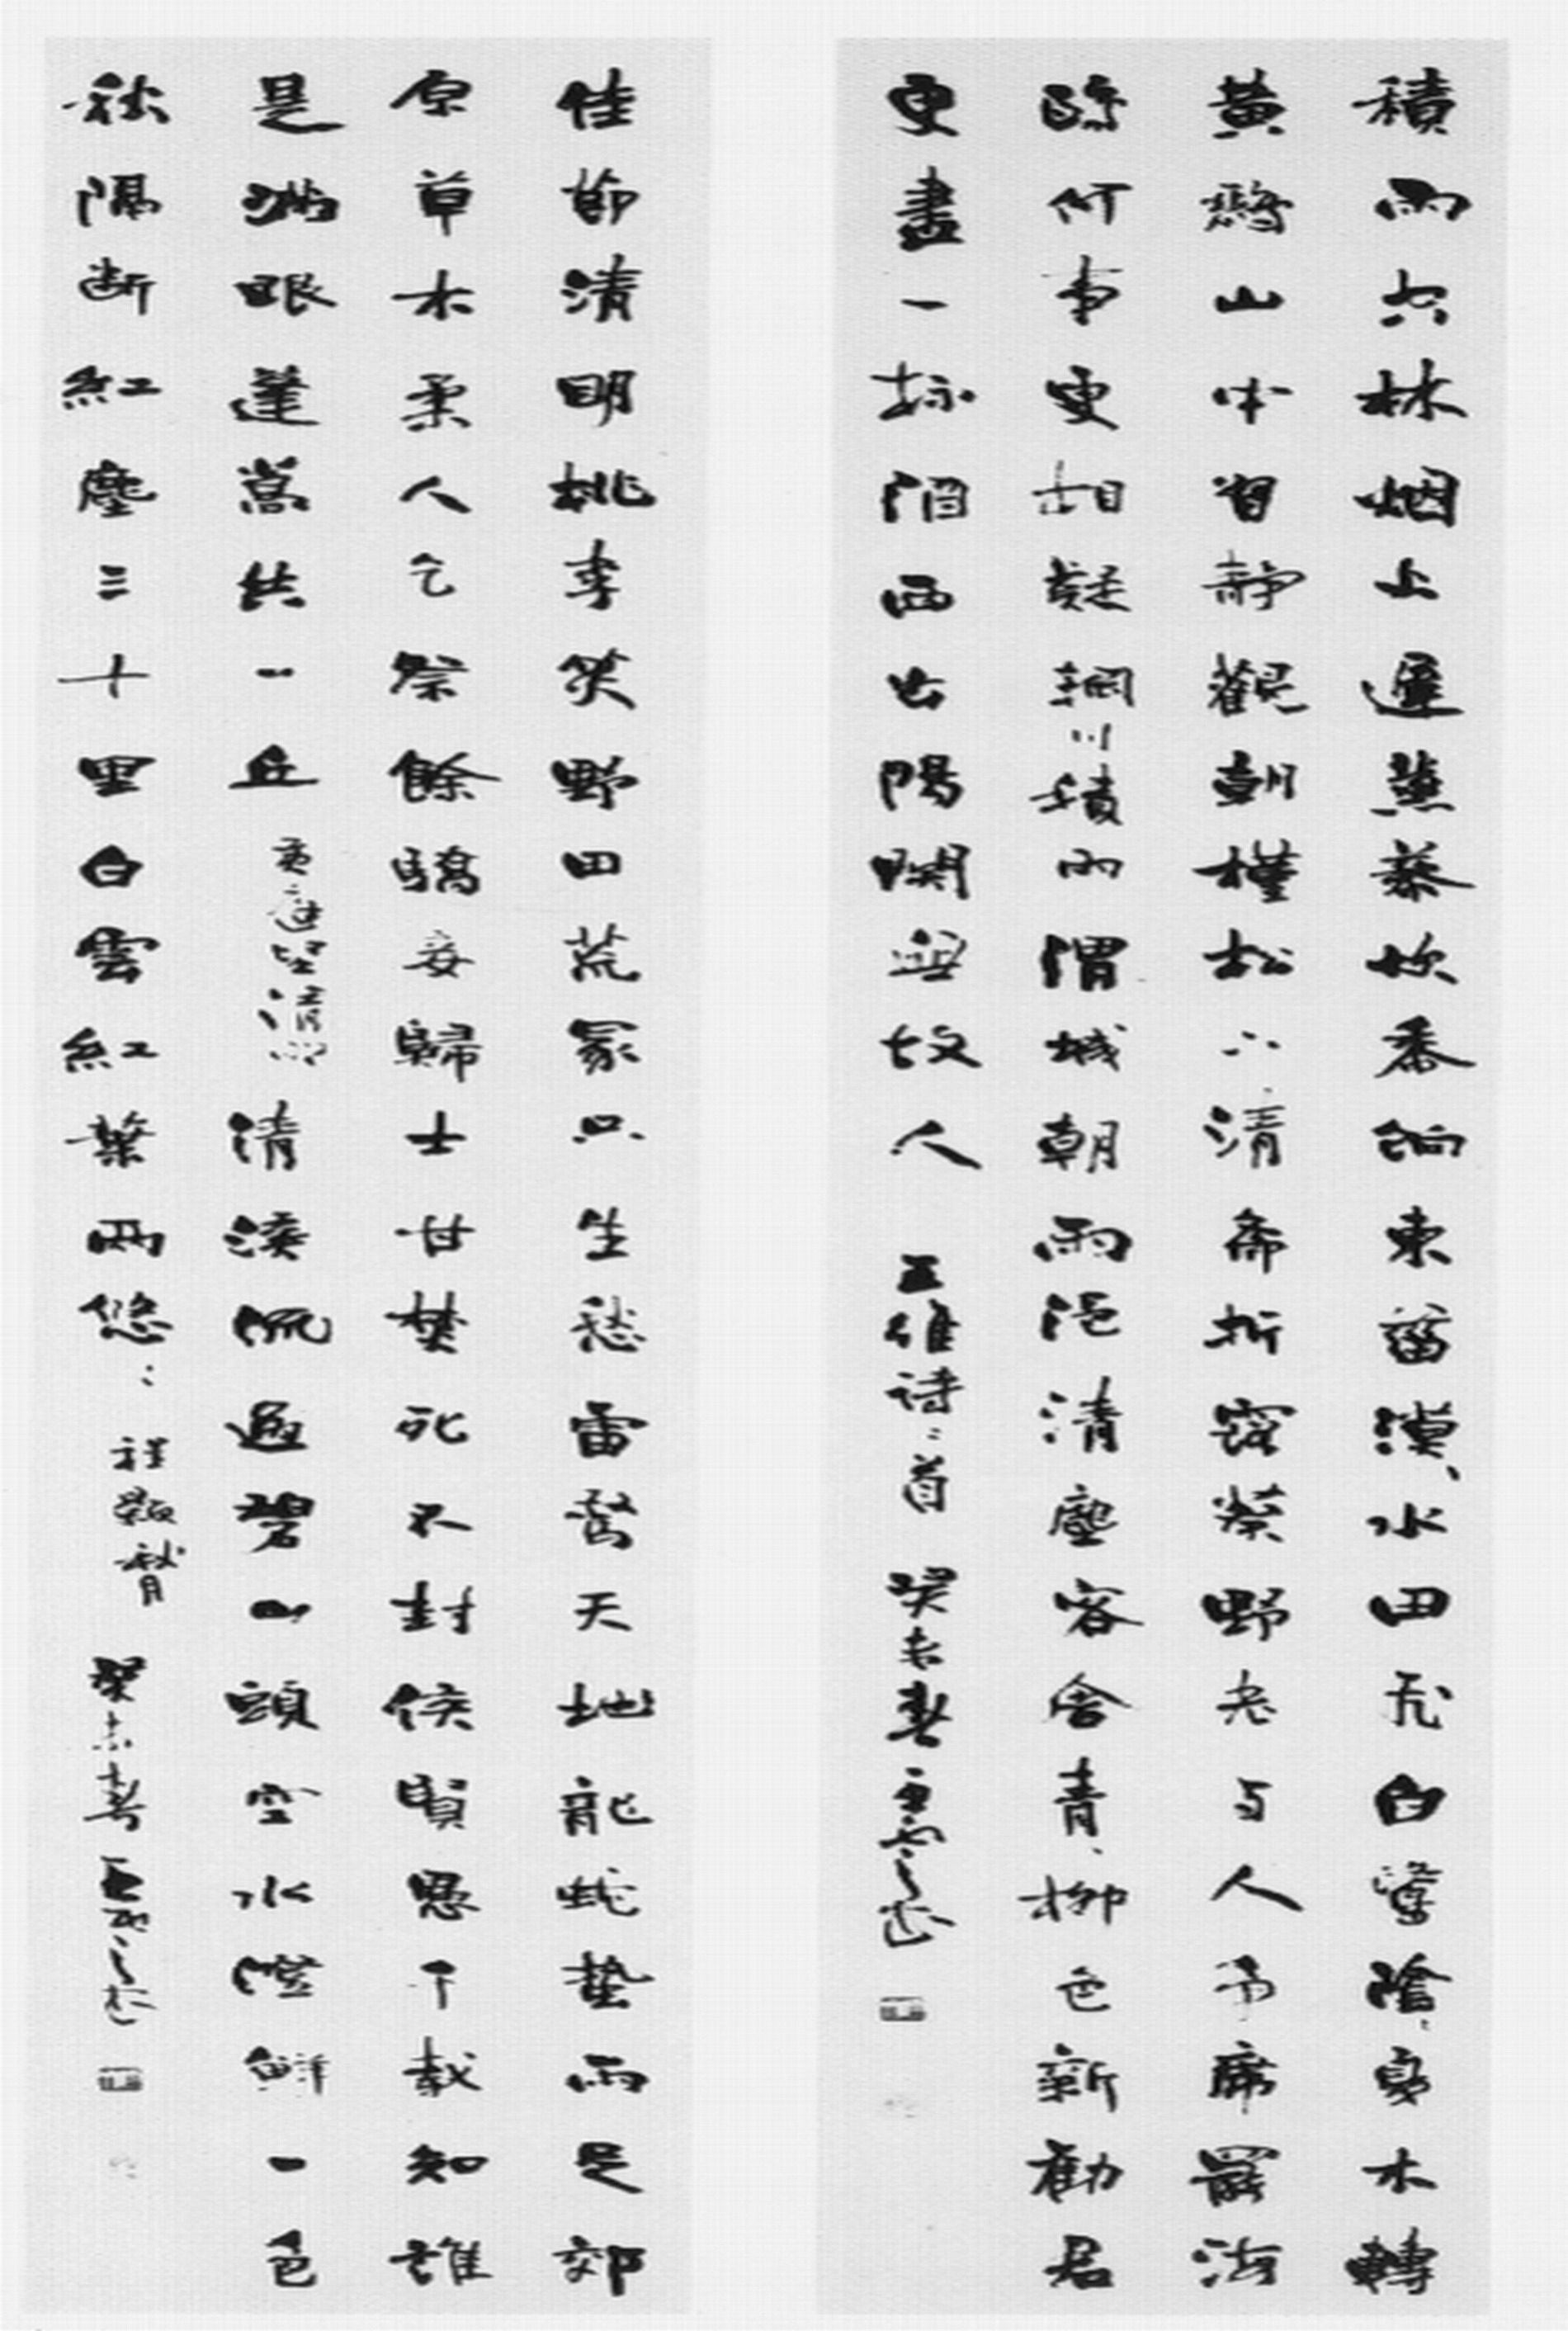 積雨空林烟火遲蒸藜炊黍餉東菑漠、水田飛白鷺陰、夏木轉
黄鸝山中習靜觀朝槿松下清齋折露葵野老与人争席罷海
鷗何事更相疑輞川積雨渭城朝雨浥清塵客舍青、柳色新勸君
更盡一杯酒西出陽關無故人 王維詩二首 癸未春
佳節清明桃李笑野田荒冢只生愁雷驚天地龍蛇蟄雨足郊
原草木柔人乞祭餘驕妾歸士甘焚死不封侯賢愚千載知誰
是滿眼蓬蒿共一丘 黄庭堅清明 清溪流過碧山頭空水澄鮮一色
秋隔断紅塵三十里白雲紅葉兩悠、 程顥秋月 癸未春